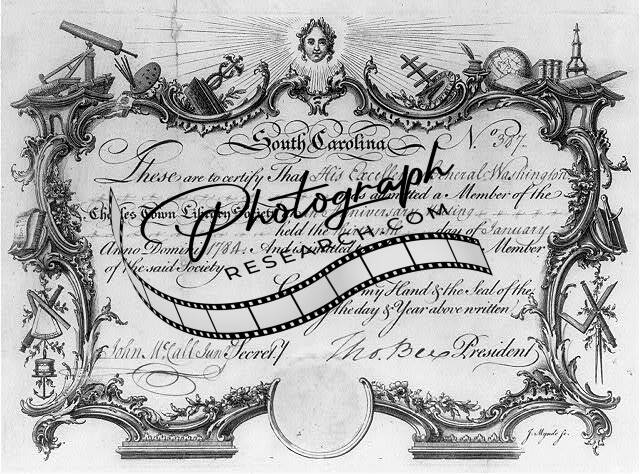 South Carolina
N.º 387.
These are to certify That His Excelle General Washington
was admitted a Member of the
Charles Town Library Society Anniversary
held the day of January
Anno Domini 1784. And is Member
of the said Society
my Hand & the Seal of the
the day & Year above written
John McCall Jun Secret.y
Tho. Bee President
J. Mynde sc.
Photograph
RESEARCH.COM